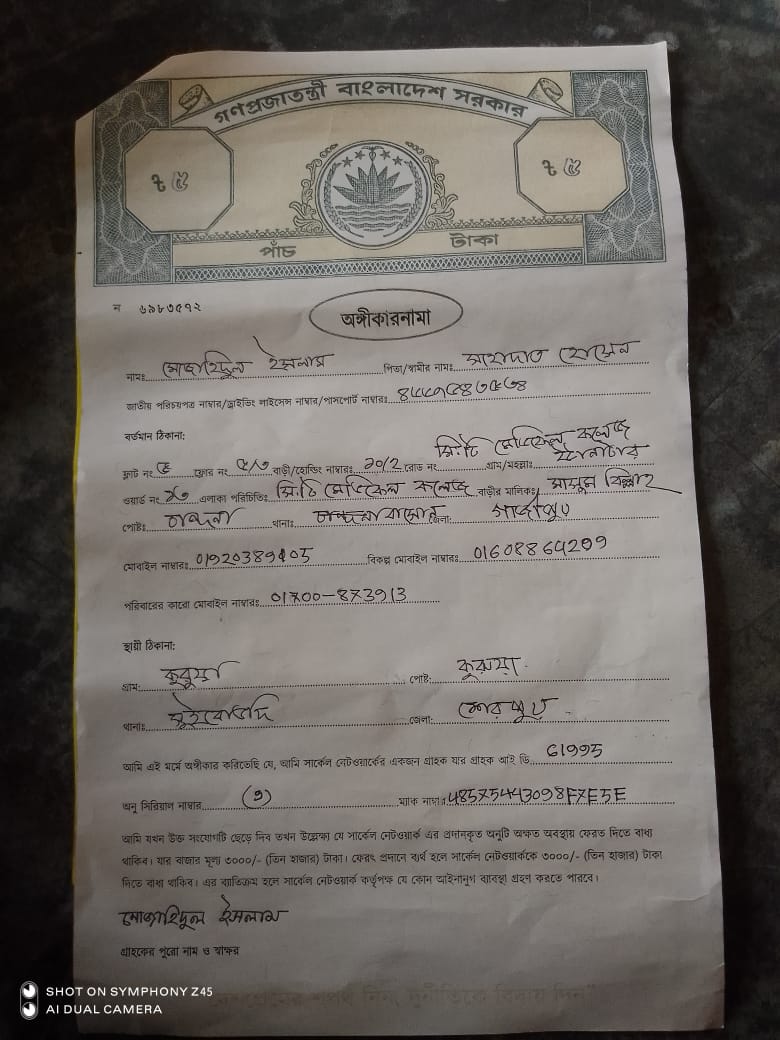 গণপ্রজাতন্ত্রী বাংলাদেশ সরকার
৳ ৫ ৳ ৫
পাঁচ টাকা
ন ৬৯৮৩৫৭২
অঙ্গীকারনামা
নামঃ মোজাহিদুল ইসলাম পিতা/স্বামীর নামঃ সাহাদাত হোসেন
জাতীয় পরিচয়পত্র নাম্বার/ড্রাইভিং লাইসেন্স নাম্বার/পাসপোর্ট নাম্বারঃ
বর্তমান ঠিকানা:
সিটি মেডিকেল কলেজ
ফ্লাট নং ৫ ফ্লোর নং বাড়ী/হোল্ডিং নাম্বারঃ ২০/২ রোড নং গ্রাম/মহল্লাঃ
ওয়ার্ড নং এলাকা পরিচিতিঃ সিটি মেডিকেল কলেজ বাড়ীর মালিকঃ মাসুম বিল্লাহ
পোষ্টঃ চান্দনা থানাঃ জেলা: গাজীপুর
মোবাইল নাম্বারঃ 01920389105 বিকল্প মোবাইল নাম্বারঃ 01608864299
পরিবারের কারো মোবাইল নাম্বারঃ 01700-873913
স্থায়ী ঠিকানা:
গ্রাম: কুরুয়া পোষ্ট: কুরুয়া
থানাঃ জেলা: শেরপুর
আমি এই মর্মে অঙ্গীকার করিতেছি যে, আমি সার্কেল নেটওয়ার্কের একজন গ্রাহক যার গ্রাহক আই ডি 61995
অনু সিরিয়াল নাম্বার (১) ম্যাক নাম্বার 48575443098F7E5E
আমি যখন উক্ত সংযোগটি ছেড়ে দিব তখন উল্লেক্ষ্য যে সার্কেল নেটওয়ার্ক এর প্রদানকৃত অনুটি অক্ষত অবস্থায় ফেরত দিতে বাধ্য
থাকিব। যার বাজার মূল্য ৩০০০/- (তিন হাজার) টাকা। ফেরৎ প্রদানে ব্যর্থ হলে সার্কেল নেটওয়ার্ককে ৩০০০/- (তিন হাজার) টাকা
দিতে বাধ্য থাকিব। এর ব্যতিক্রম হলে সার্কেল নেটওয়ার্ক কর্তৃপক্ষ যে কোন আইনানুগ ব্যাবস্থা গ্রহণ করতে পারবে।
মোজাহিদুল ইসলাম
গ্রাহকের পুরো নাম ও স্বাক্ষর
SHOT ON SYMPHONY Z45
AI DUAL CAMERA